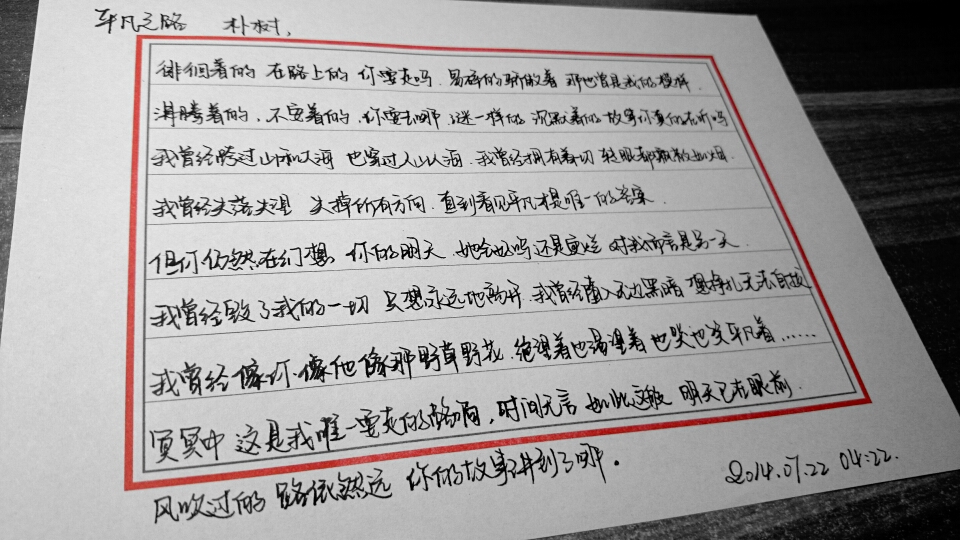 平凡之路 朴树,
徘徊着的 在路上的 你要走吗 易碎的骄傲着 那也曾是我的模样
沸腾着的,不安着的,你要去哪 谜一样的 沉默着的 故事你真的在听吗
我曾经跨过山和大海 也穿过人山人海 我曾经拥有着一切 转眼都飘散如烟
我曾经失落失望 失掉所有方向 直到看见平凡才是唯一的答案
但你仍然在幻想 你的明天 她会好吗还是更烂 对我而言是另一天
我曾经毁了我的一切 只想永远地离开 我曾经堕入无边黑暗 想挣扎无法自拔
我曾经像你像他像那野草野花 绝望着也渴望着也哭也笑平凡着……
冥冥中 这是我唯一要走的路啊,时间无言 如此这般 明天已在眼前
风吹过的 路依然远 你的故事讲到了哪。
2014.07.22 04:22.